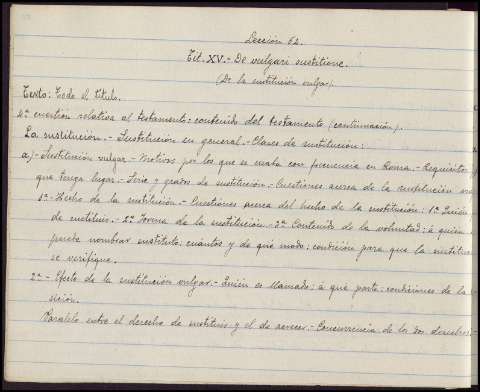 Lección 62.
Tit. XV.- De vulgari sustitione.
(De la sustitución vulgar).
Texto: Todo el título.
2ª cuestión relativa al testamento: contenido del testamento (continuación).
La sustitución.- Sustitución en general.- Clases de sustitución:
a)- Sustitución vulgar.- Motivos por los que se usaba con frecuencia en Roma.- Requisitos
que tenga lugar.- Serie y grados de sustitución.- Cuestiones acerca de la sustitución
1ª- Hecho de la sustitución.- Cuestiones acerca del hecho de la sustitución: 1ª Quién
de sustituir.- 2ª Forma de la sustitución.- 3ª Contenido de la voluntad: á quién
puede nombrar sustituto; cuantos y de qué modo; condición para que la
se verifique.
2ª- Efecto de la sustitución vulgar.- Quién es llamado; á qué parte; condiciones de la
sición.
Paralelo entre el derecho de sustituir y el de acrecer.- Concurrencia de los dos derechos.-